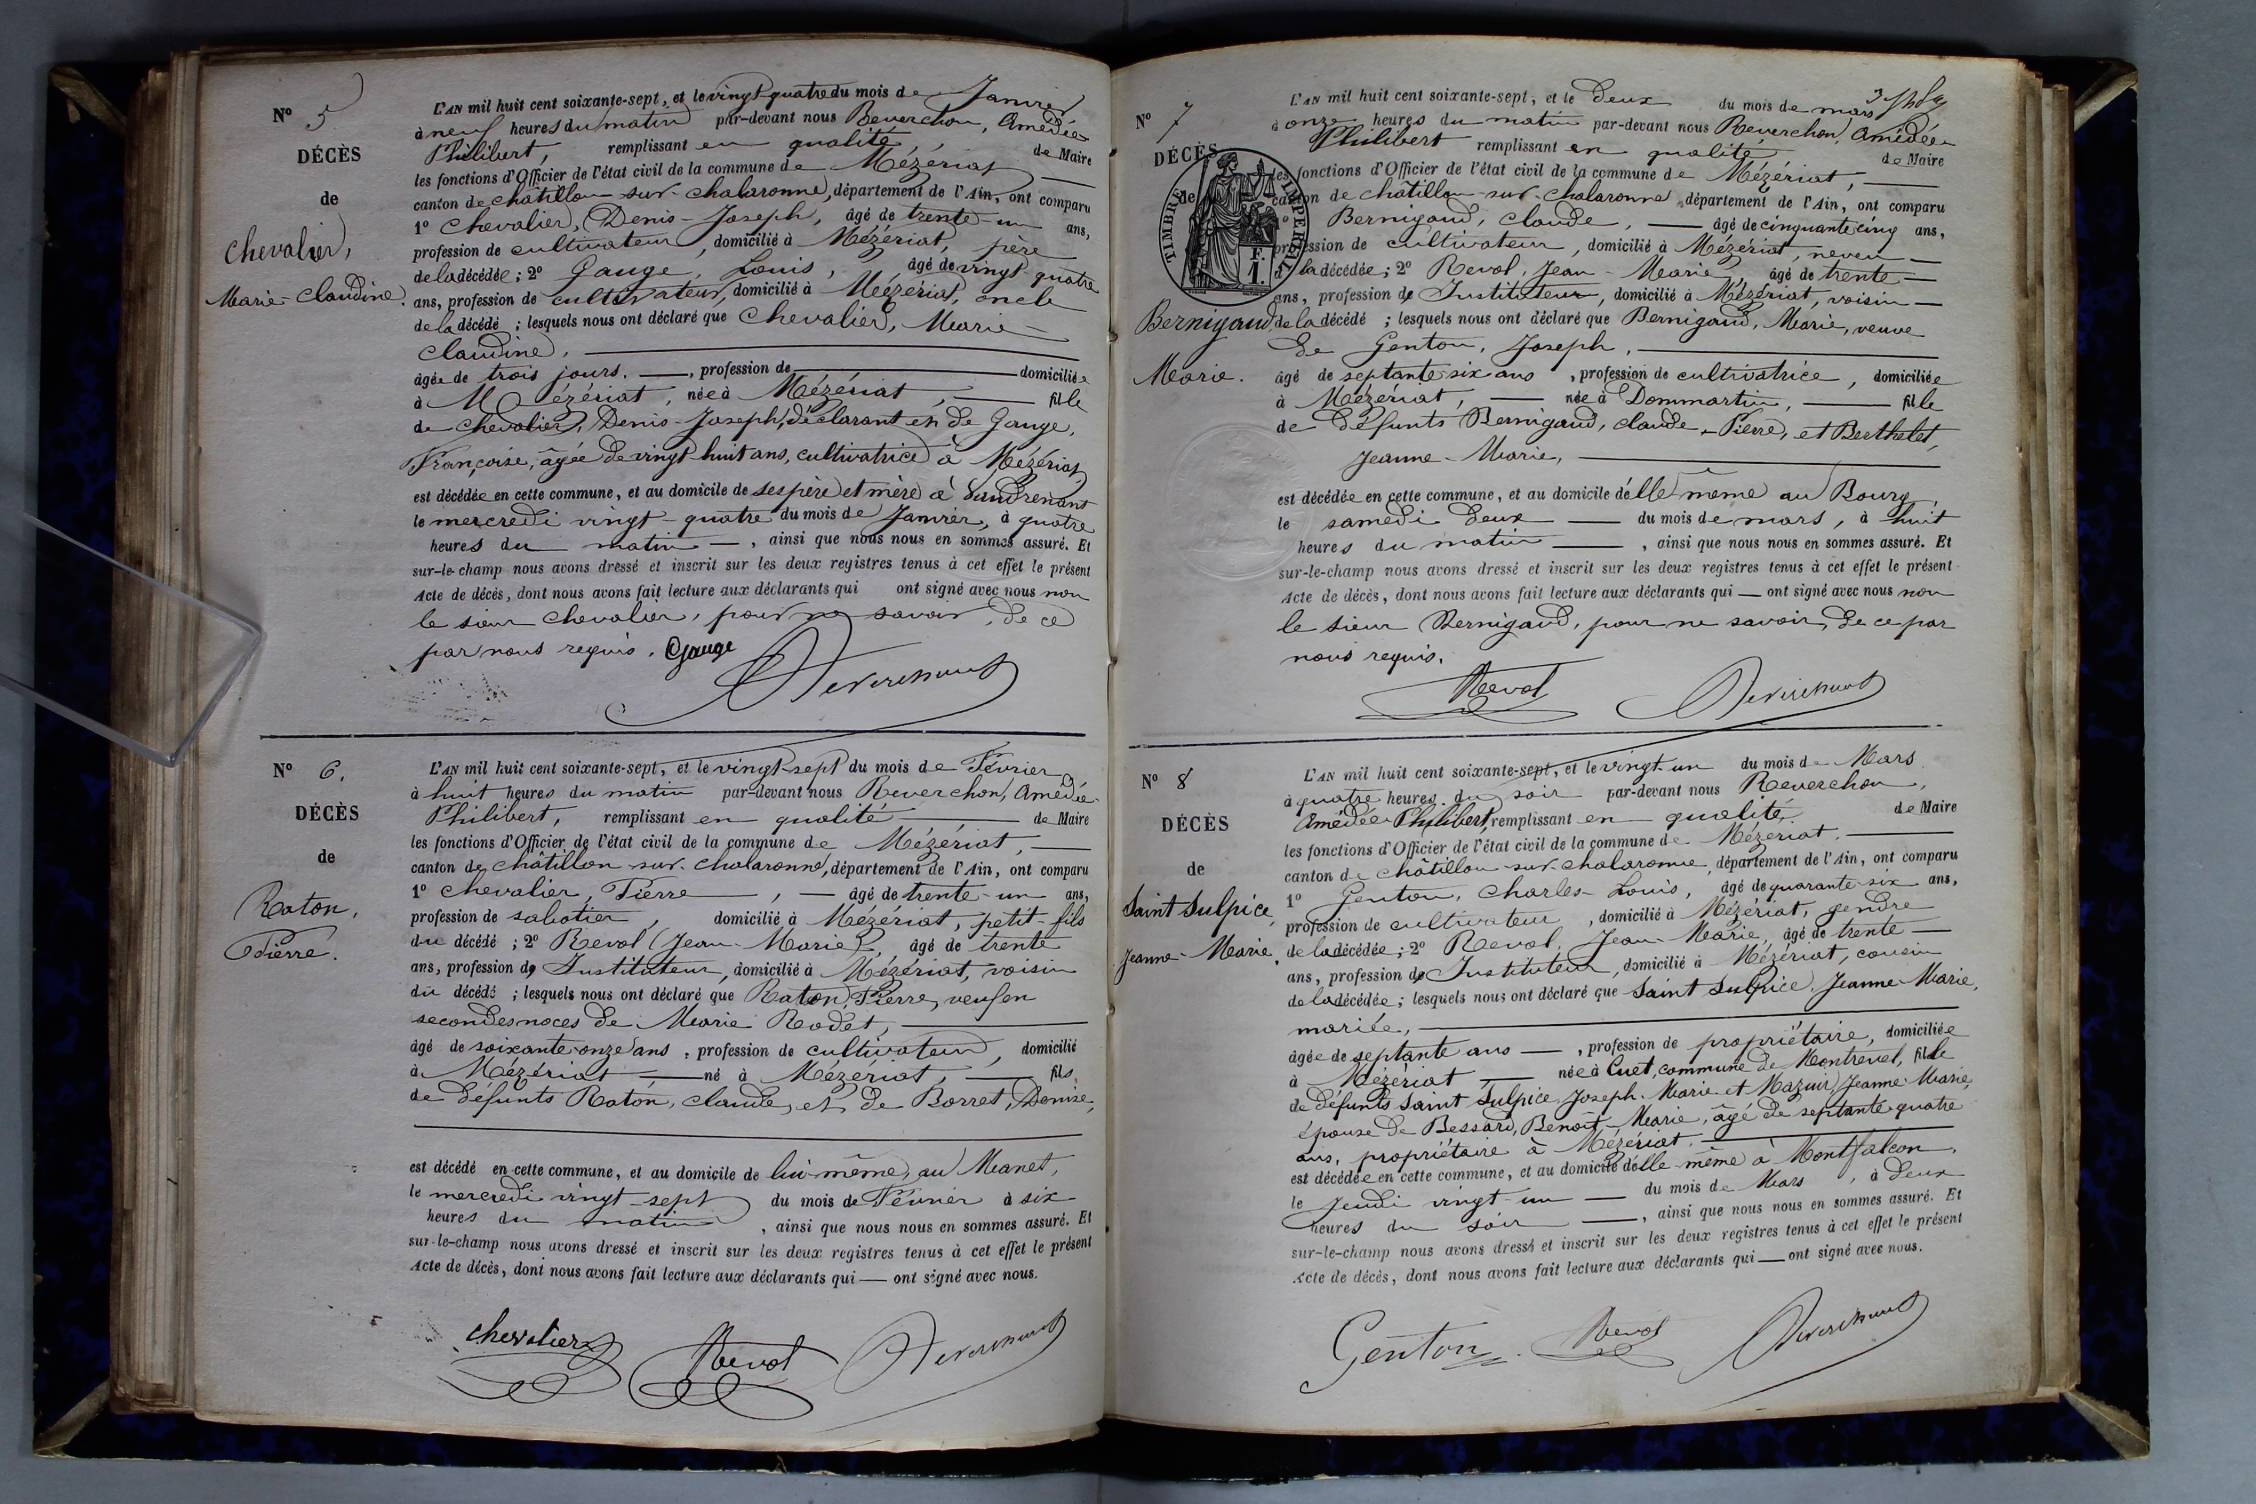 N° 5
DÉCÈS
de
Chevalier,
Marie-Claudine.
L'AN mil huit cent soixante-sept, et le vingt quatre du mois de Janvier
à neuf heures du matin par-devant nous Reverchon, Amédée
Philibert, remplissant en qualité de Maire
les fonctions d'Officier de l'état civil de la commune de Mézériat
canton de châtillon-sur-chalaronne, département de l'Ain, ont comparu
1° Chevalier, Denis-Joseph, âgé de trente-un ans,
profession de cultivateur, domicilié à Mézériat, père
de la décédée; 2° Gauge, Louis, âgé de vingt quatre
ans, profession de cultivateur, domicilié à Mézériat, oncle
de la décédé; lesquels nous ont déclaré que Chevalier, Marie-
Claudine,
âgée de trois jours. , profession de domiciliée
à Mézériat, née à Mézériat, fille
de Chevalier, Denis-Joseph, déclarant et de Gauge,
Françoise, âgée de vingt huit ans, cultivatrice à Mézériat
est décédée en cette commune, et au domicile de ses père et mère à Vandrenant
le mercredi vingt-quatre du mois de Janvier, à quatre
heures du matin, ainsi que nous nous en sommes assuré. Et
sur-le-champ nous avons dressé et inscrit sur les deux registres tenus à cet effet le présent
Acte de décès, dont nous avons fait lecture aux déclarants qui ont signé avec nous non
le sieur Chevalier, pour ne savoir, de ce
par nous requis. Gauge
Reverchon
N° 6.
DÉCÈS
de
Raton,
Pierre.
L'AN mil huit cent soixante-sept, et le vingt-sept du mois de Février
à huit heures du matin par-devant nous Reverchon, Amédée
Philibert, remplissant en qualité de Maire
les fonctions d'Officier de l'état civil de la commune de Mézériat,
canton de châtillon-sur-chalaronne, département de l'Ain, ont comparu
1° Chevalier, Pierre, âgé de trente-un ans,
profession de sabotier, domicilié à Mézériat, petit-fils
du décédé; 2° Revol (Jean-Marie), âgé de trente
ans, profession de Instituteur, domicilié à Mézériat, voisin
du décédé; lesquels nous ont déclaré que Raton, Pierre, veuf en
secondes noces de Marie Rodet,
âgé de soixante-onze ans, profession de cultivateur, domicilié
à Mézériat né à Mézériat, fils
de défunts Raton, Claude, et de Borret, Denise,
est décédé en cette commune, et au domicile de lui-même, au Manet,
le mercredi vingt-sept du mois de Février à six
heures du matin, ainsi que nous nous en sommes assuré. Et
sur-le-champ nous avons dressé et inscrit sur les deux registres tenus à cet effet le présent
Acte de décès, dont nous avons fait lecture aux déclarants qui — ont signé avec nous.
Chevalier Revol Reverchon
N° 7
DÉCÈS
de
TIMBRE IMPÉRIAL
F.
1.
Bernigaud,
Marie.
L'AN mil huit cent soixante-sept, et le deux du mois de mars
à onze heures du matin par-devant nous Reverchon, Amédée
Philibert remplissant en qualité de Maire
les fonctions d'Officier de l'état civil de la commune de Mézériat,
canton de châtillon-sur-chalaronne, département de l'Ain, ont comparu
1° Bernigaud, Claude, âgé de cinquante cinq ans,
profession de cultivateur, domicilié à Mézériat, neveu
de la décédée; 2° Revol, Jean-Marie, âgé de trente
ans, profession de Instituteur, domicilié à Mézériat, voisin
de la décédé; lesquels nous ont déclaré que Bernigaud, Marie, veuve
de Genton, Joseph,
âgé de septante six ans, profession de cultivatrice, domiciliée
à Mézériat, née à Dommartin, fille
de défunts Bernigaud, Claude-Pierre, et Berthelet,
Jeanne-Marie,
est décédée en cette commune, et au domicile d'elle même au Bourg,
le samedi deux du mois de mars, à huit
heures du matin, ainsi que nous nous en sommes assuré. Et
sur-le-champ nous avons dressé et inscrit sur les deux registres tenus à cet effet le présent
Acte de décès, dont nous avons fait lecture aux déclarants qui — ont signé avec nous non
le sieur Bernigaud, pour ne savoir, de ce par
nous requis.
Revol Reverchon
N° 8
DÉCÈS
de
Saint Sulpice,
Jeanne-Marie,
L'AN mil huit cent soixante-sept, et le vingt-un du mois de Mars
à quatre heures du soir par-devant nous Reverchon,
Amédée Philibert, remplissant en qualité de Maire
les fonctions d'Officier de l'état civil de la commune de Mézériat,
canton de châtillon-sur-chalaronne, département de l'Ain, ont comparu
1° Genton, Charles-Louis, âgé de quarante-six ans,
profession de cultivateur, domicilié à Mézériat, gendre
de la décédée; 2° Revol, Jean-Marie, âgé de trente
ans, profession de Instituteur, domicilié à Mézériat, cousin
de la décédée; lesquels nous ont déclaré que Saint Sulpice, Jeanne-Marie,
mariée,
âgée de septante ans, profession de propriétaire, domiciliée
à Mézériat née à Cuet, commune de Montrevel, fille
de défunts Saint Sulpice, Joseph-Marie et Mazuir, Jeanne-Marie,
épouse de Bessard, Benoît-Marie, âgé de septante-quatre
ans, propriétaire à Mézériat.
est décédée en cette commune, et au domicile d'elle-même à Montfalcon,
le jeudi vingt-un du mois de Mars, à deux
heures du soir, ainsi que nous nous en sommes assuré. Et
sur-le-champ nous avons dressé et inscrit sur les deux registres tenus à cet effet le présent
Acte de décès, dont nous avons fait lecture aux déclarants qui — ont signé avec nous.
Genton Revol Reverchon